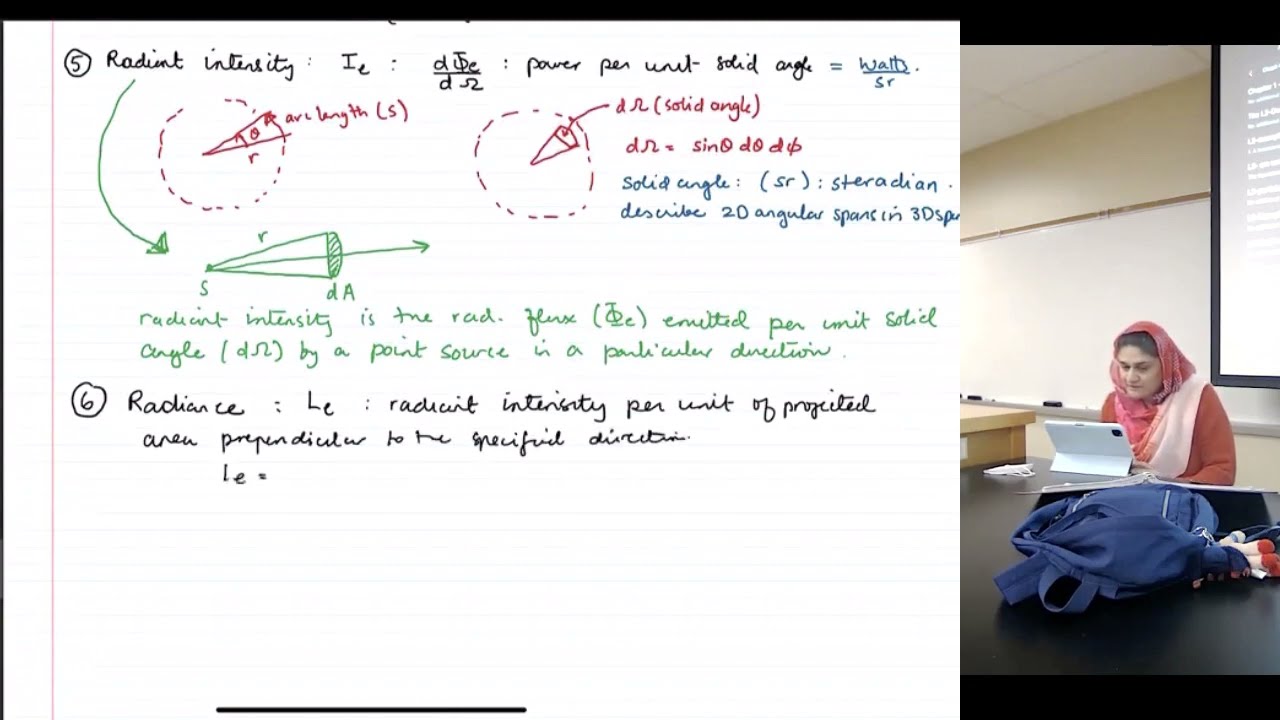 ⑤ Radient intensity : Ie : dΦe/dΩ : power per unit solid angle = watts/sr .
arc length (s)
θ
r
dΩ (solid angle)
dΩ = sinθ dθ dϕ
solid angle : (sr) : steradian .
describe 2D angular spans in 3D spa
r
S
dA
radiant intensity is the rad. flux (Φe) emitted per unit solid
angle (dΩ) by a point source in a particular direction .
⑥ Radiance : Le : radiant intensity per unit of projected
area prependicular to the specified direction.
Le =